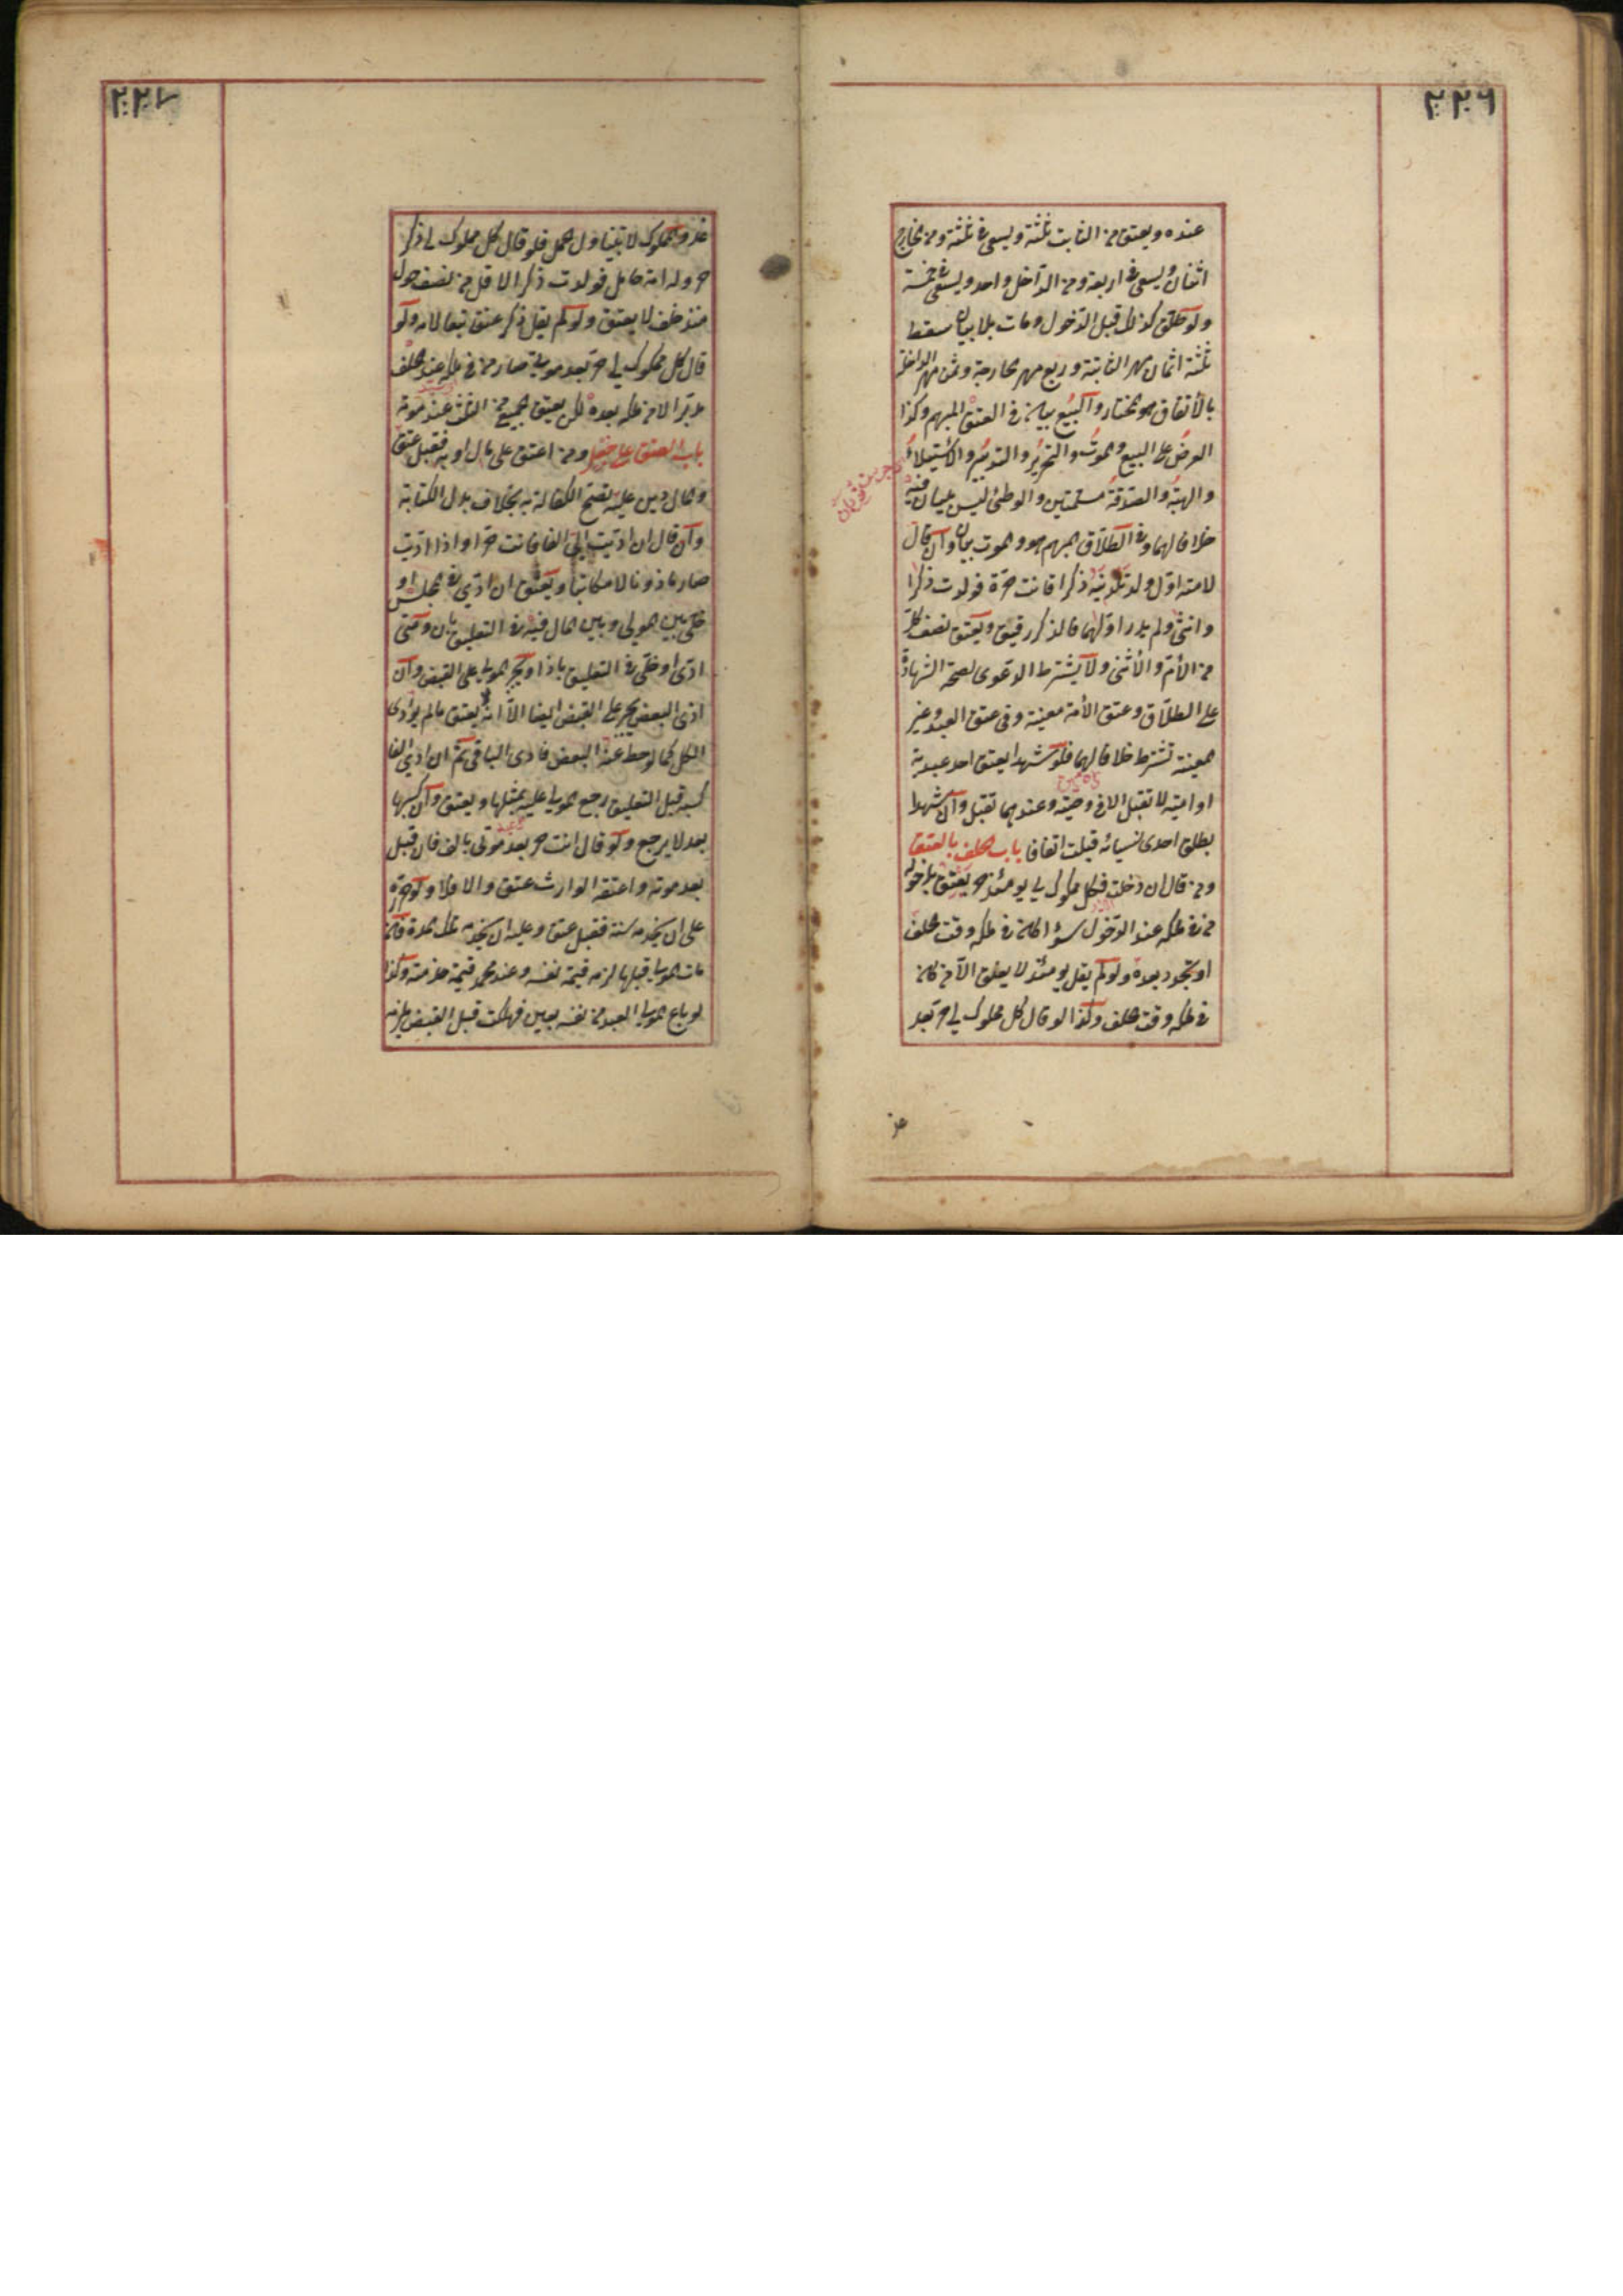 ٢٢٦
عنده ويعتق من الثابت ثلثة ويسعى في ثلثة ومن الخارج
اثنان ويسعى في اربعة ومن الداخل واحد ويسعى في خمسة
ولو طلق كذلك قبل الدخول ومات بلا بيان سقط
ثلثة اثمان مهر الثابتة وربع مهر الخارجة وثمن مهر الداخلة
بالاتفاق هو المختار والبيع بيان في العتق المبهم وكذا
العرض على البيع والموت والتحرير والتدبير والاستيلاد
والهبة والصدقة مسلمتين والوطئ ليس ببيان فيه
خلافا لهما وفي الطلاق المبهم هو والموت بيان وان قال
لامته اول ولد تلدينه ذكرا فانت حرة فولدت ذكرا
وانثى ولم يدر اولهما فالذكر رقيق ويعتق نصف كل
من الام والانثى ولا يشترط الدعوى لصحة الشهادة
على الطلاق وعتق الامة معينة وفي عتق العبد وغير
المعينة تشترط خلافا لهما فلو شهدا بعتق احد عبديه
او امتيه لا تقبل الا في وصية وعندهما تقبل وان شهدا
بطلاق احدى نسائه قبلت اتفاقا باب الحلف بالعتق
ومن قال ان دخلت فكل مملوك لي يومئذ حر يعتق بدخوله
من في ملكه عند الدخول سواء كان في ملكه وقت الحلف
او تجدد بعده ولو لم يقل يومئذ لا يعتق الا من كان
في ملكه وقت الحلف وكذا لو قال كل مملوك لي حر بعد
غد
٢٢٧
غد والمملوك لا يتناول الحمل فلو قال كل مملوك لي ذكر
حر وله امة حامل فولدت ذكرا لاقل من نصف حول
منذ حلف لا يعتق ولو لم يقل ذكر عتق تبعا لامه ولو
قال كل مملوك لي حر بعد موتي صار من في ملكه عند الحلف
مدبرا لا من ملكه بعده لكن يعتق الجميع من الثلث عند موته
باب العتق على جعل ومن اعتق على مال او به فقبل عتق
والمال دين عليه تصح الكفالة به بخلاف بدل الكتابة
وان قال ان اديت الي الفا فانت حر او اذا اديت
صار ماذونا لا مكاتبا ويعتق ان ادى في المجلس او
خلى بين المولى وبين المال فيه في التعليق بان ومتى
ادى او خلى في التعليق باذا ويجبر المولى على القبض وان
ادى البعض يجبر على القبض ايضا الا انه لا يعتق ما لم يؤدى
الكل كما لو حط عنه البعض فادى الباقي ثم ان ادى الفا
كسبه قبل التعليق رجع المولى عليه بمثلها ويعتق وان كسبها
بعد لا يرجع ولو قال انت حر بعد موتي بالف فان قبل
بعد موته واعتقه الوارث عتق والا فلا ولو حرره
على ان يخدمه سنة فقبل عتق وعليه ان يخدمه تلك المدة فان
مات المولى قبلها لزمه قيمة نفسه وعند محمد قيمة خدمته وكذا
لو باع المولى العبد من نفسه بعين فهلكت قبل القبض يلزمه